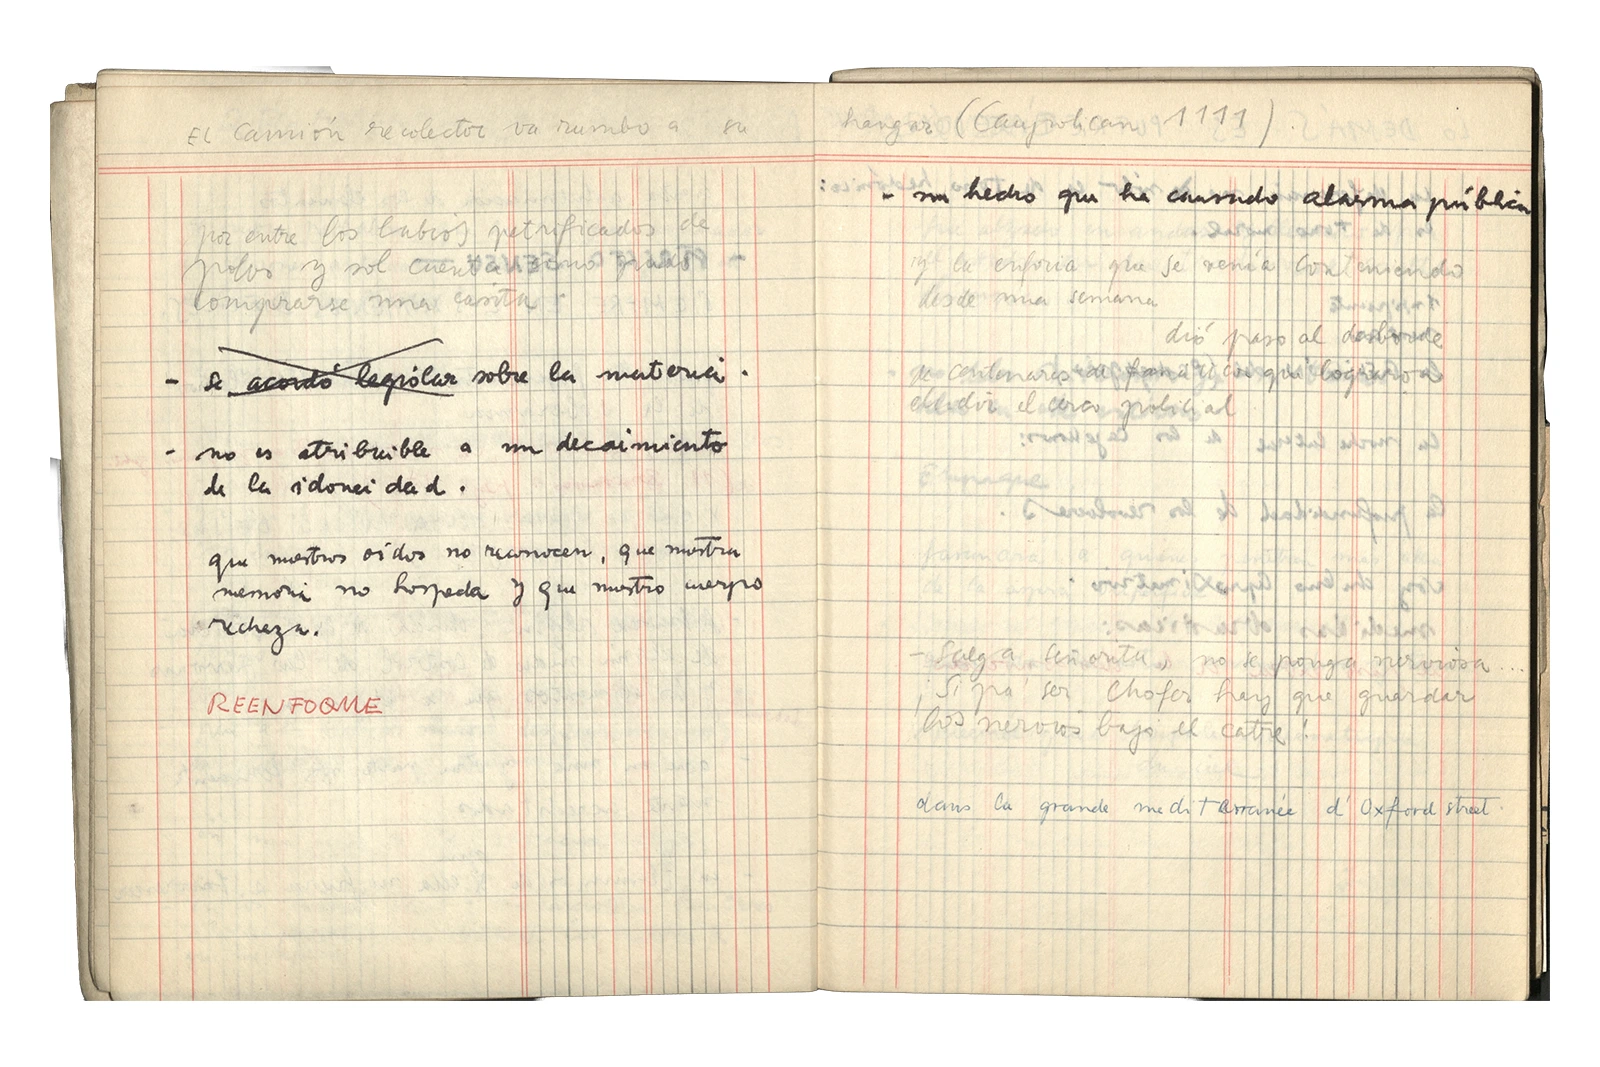 El Camión recolector va rumbo a su hangar (Caupolican 1111).
por entre los labios petrificados de
polvo y sol cuenta como pudo
comprarse una casita
- se acordó legislar sobre la materia.
- no es atribuible a un decaimiento
de la idoneidad.
que nuestros oídos no reconocen, que nuestra
memoria no hospeda y que nuestro cuerpo
rechaza.
REENFOQUE
- un hedor que ha causado alarma pública
y la euforia que se venía conteniendo
desde una semana
dió paso al desborde
de centenares de fanáticos que lograron
eludir el cerco policial
Enrique
- Salga Señorita, no se ponga nerviosa...
¡Si pa' ser chofer hay que guardar
los nervios bajo el catre!
dans la grande mediterranée d'Oxford street.